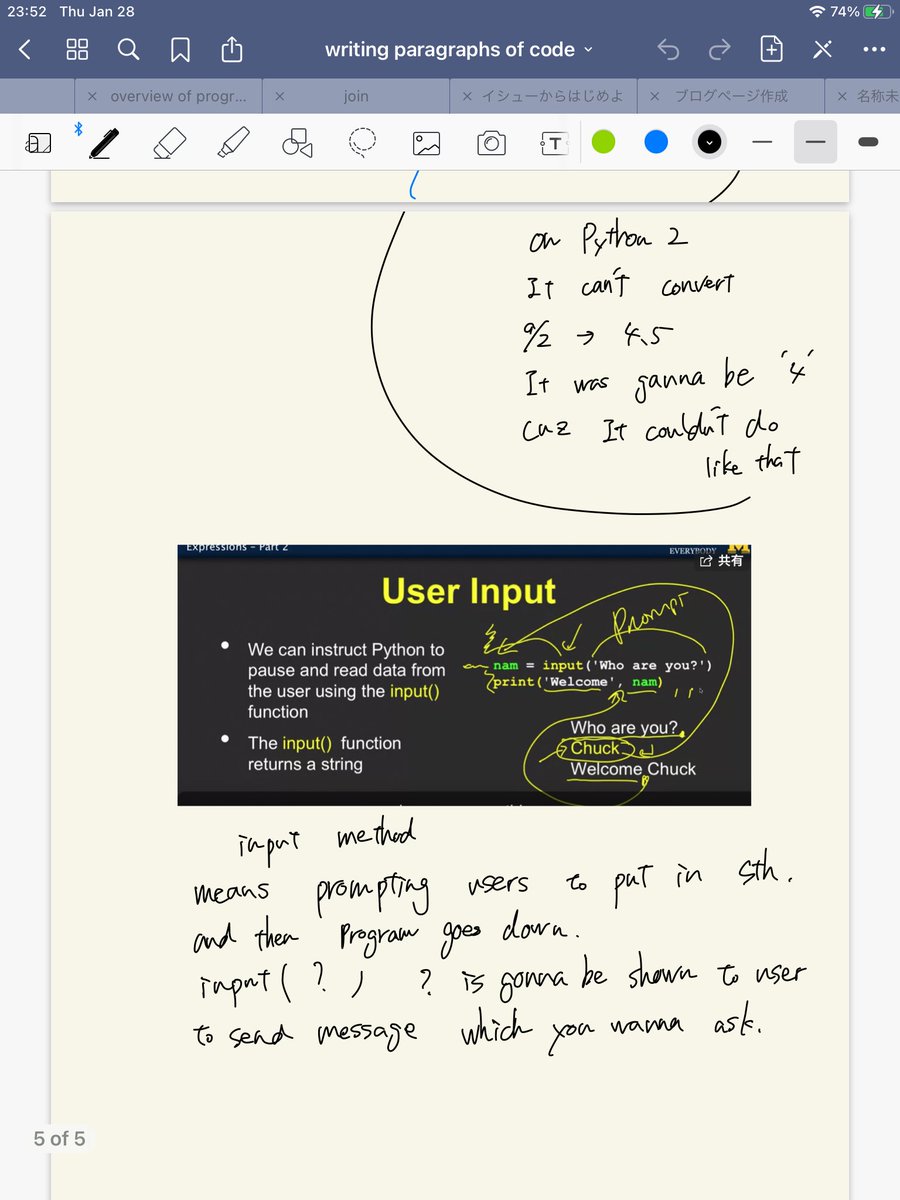 23:52 Thu Jan 28
74%
writing paragraphs of code
overview of progr...
join
イシューからはじめよ
ブログページ作成
名称未
T
on Python 2
It can't convert
9/2 → 4.5
It was ganna be '4'
cuz It couldn't do
like that
Expressions - Part 2
EVERYBODY
共有
User Input
Prompt
• We can instruct Python to
pause and read data from
the user using the input()
function
• The input() function
returns a string
nam = input('Who are you?')
print('Welcome', nam)
Who are you?
Chuck
Welcome Chuck
input method
means prompting users to put in sth.
and then Program goes down.
input( ? ) ? is gonna be shown to user
to send message which you wanna ask.
5 of 5